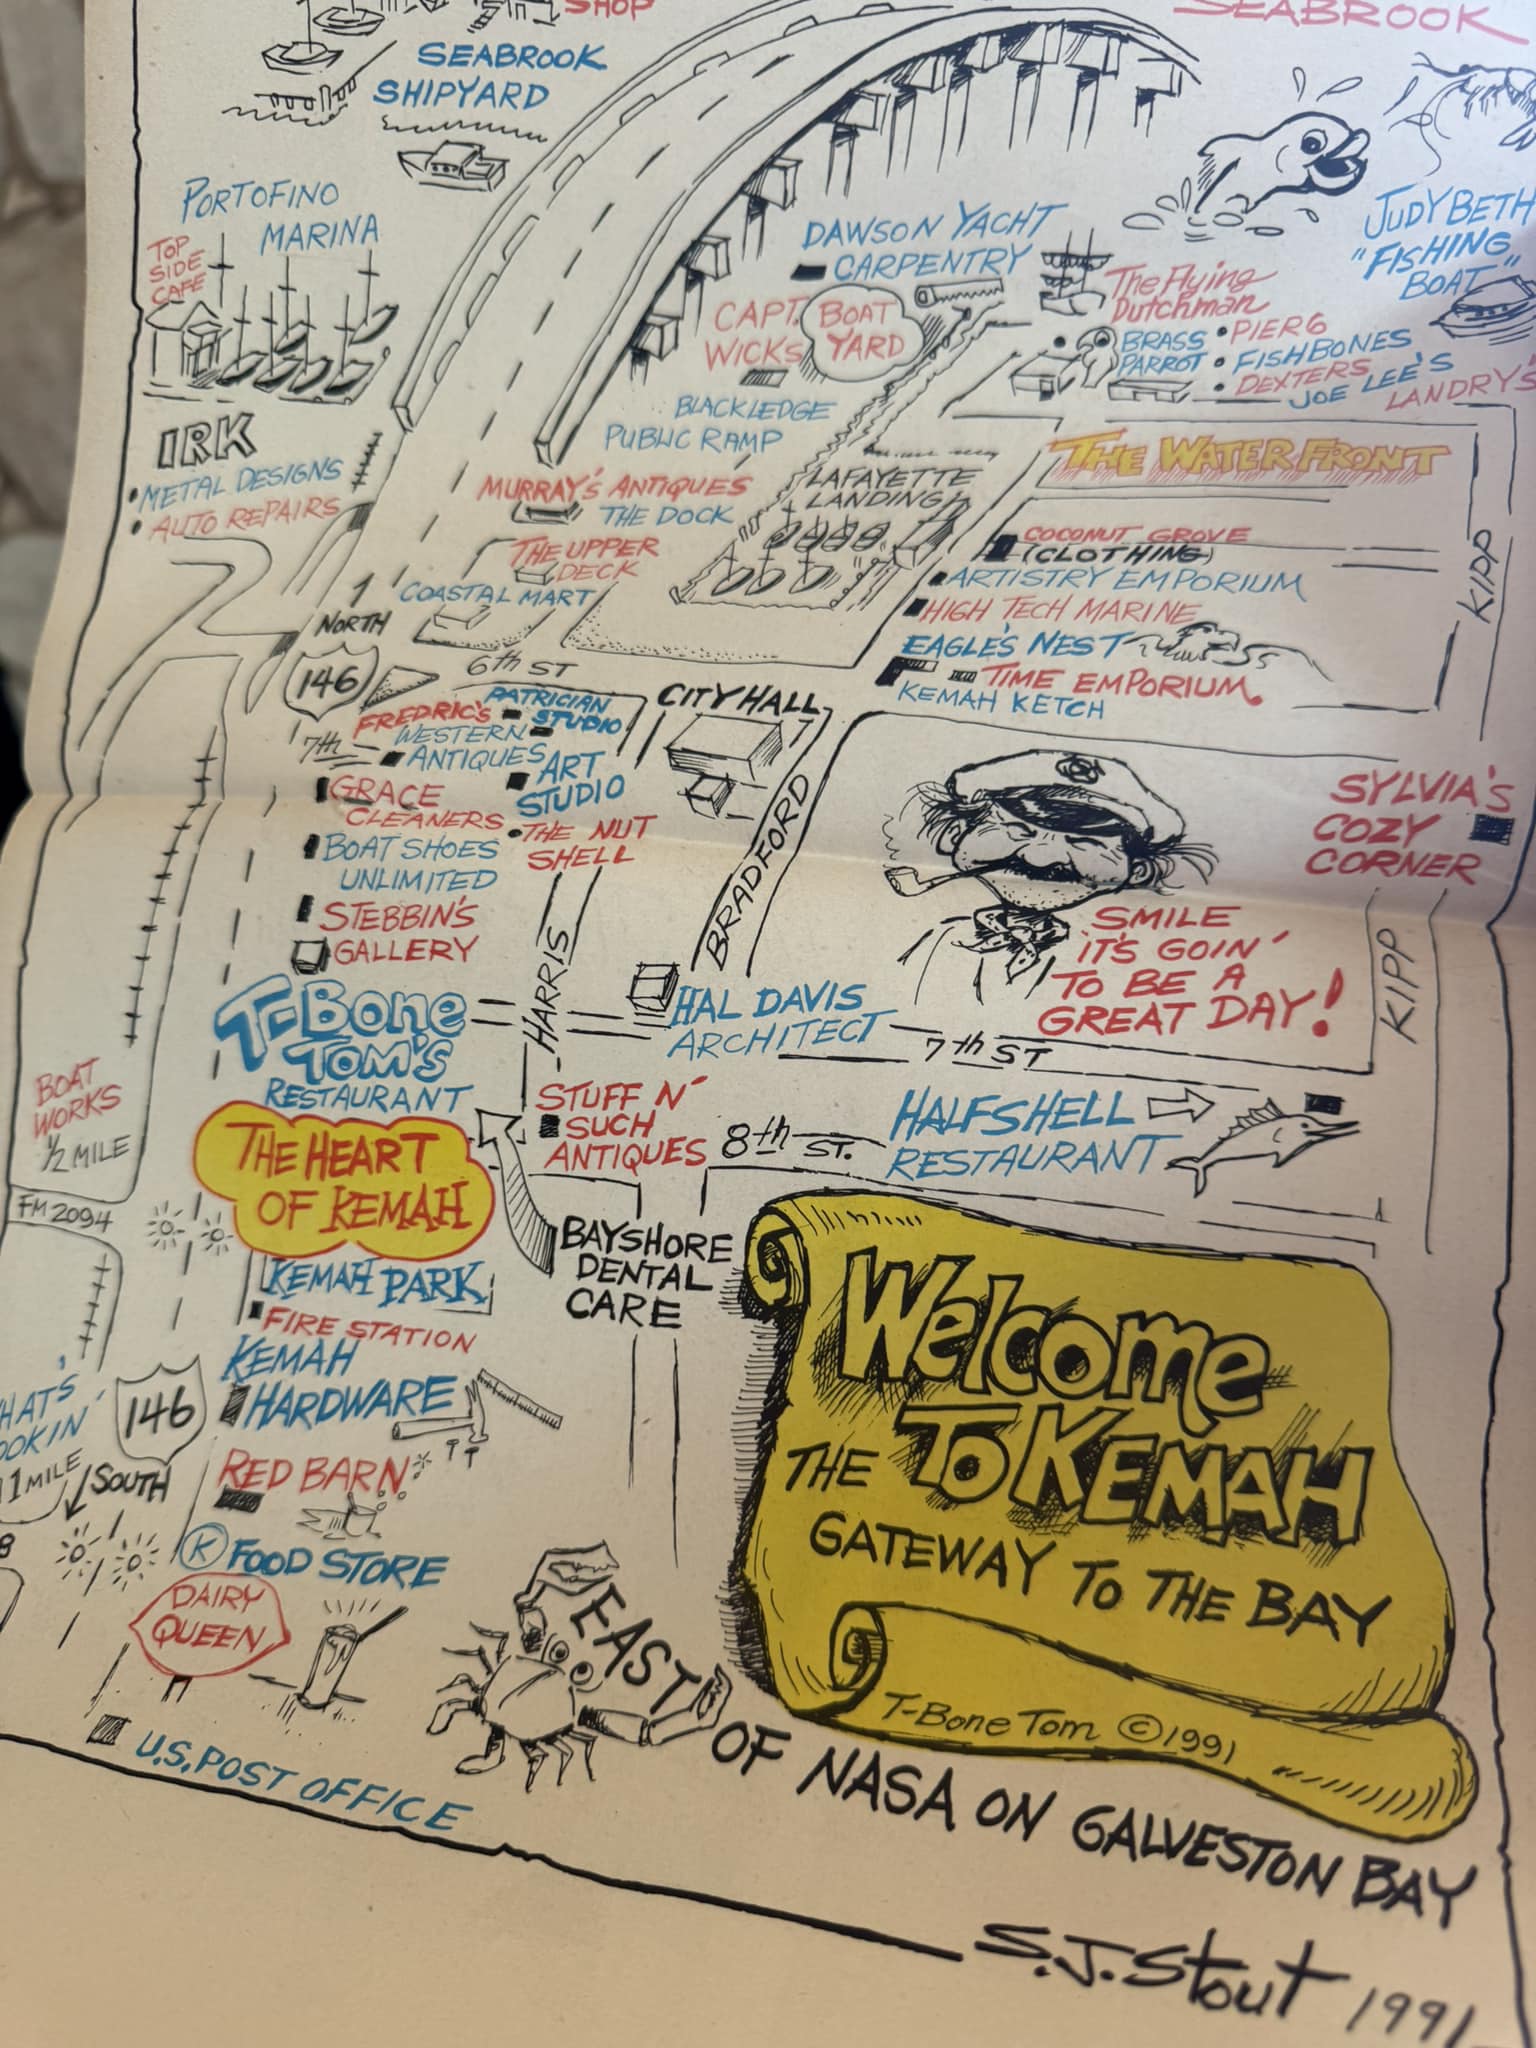 SHOP
SEABROOK
SEABROOK
SHIPYARD
PORTOFINO
MARINA
TOP
SIDE
CAFE
DAWSON YACHT
CARPENTRY
JUDY BETH
"FISHING
BOAT"
CAPT.
WICKS
BOAT
YARD
The Flying
Dutchman
BRASS
PARROT
• PIER 6
• FISHBONES
• DEXTERS
JOE LEE'S
LANDRY'S
BLACKLEDGE
PUBLIC RAMP
IRK
• METAL DESIGNS
• AUTO REPAIRS
THE WATER FRONT
MURRAY'S ANTIQUES
THE DOCK
LAFAYETTE
LANDING
THE UPPER
DECK
COASTAL MART
COCONUT GROVE
(CLOTHING)
ARTISTRY EMPORIUM
HIGH TECH MARINE
EAGLE'S NEST
TIME EMPORIUM.
KEMAH KETCH
KIPP
NORTH
146
6th ST
CITY HALL
PATRICIAN
STUDIO
FREDRIC'S
WESTERN
ANTIQUES
7th
ART
STUDIO
GRACE
CLEANERS
• THE NUT
SHELL
BOAT SHOES
UNLIMITED
STEBBIN'S
GALLERY
BRADFORD
HARRIS
SYLVIA'S
COZY
CORNER
SMILE
IT'S GOIN'
TO BE A
GREAT DAY!
KIPP
T-BONE
TOM'S
RESTAURANT
HAL DAVIS
ARCHITECT
7th ST
BOAT
WORKS
1/2 MILE
THE HEART
OF KEMAH
STUFF N'
SUCH
ANTIQUES
8th ST.
HALFSHELL
RESTAURANT
FM 2094
BAYSHORE
DENTAL
CARE
KEMAH PARK
FIRE STATION
KEMAH
HARDWARE
146
SOUTH
1 MILE
RED BARN
K FOOD STORE
DAIRY
QUEEN
U.S. POST OFFICE
Welcome
TO KEMAH
THE
GATEWAY TO THE BAY
T-Bone Tom ©1991
EAST OF NASA ON GALVESTON BAY
S.J. Stout 1991